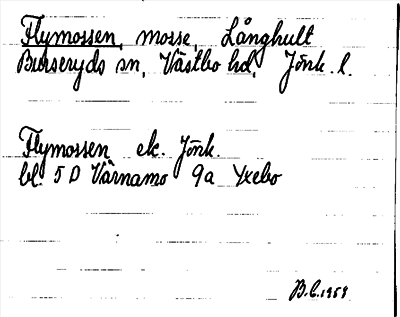 Flymossen, mosse, Långhult
Burseryds sn, Västbo hd, Jönk. l.
Flymossen ek. Jönk.
bl. 5 D Värnamo 9a Yxebo
B.C. 1958